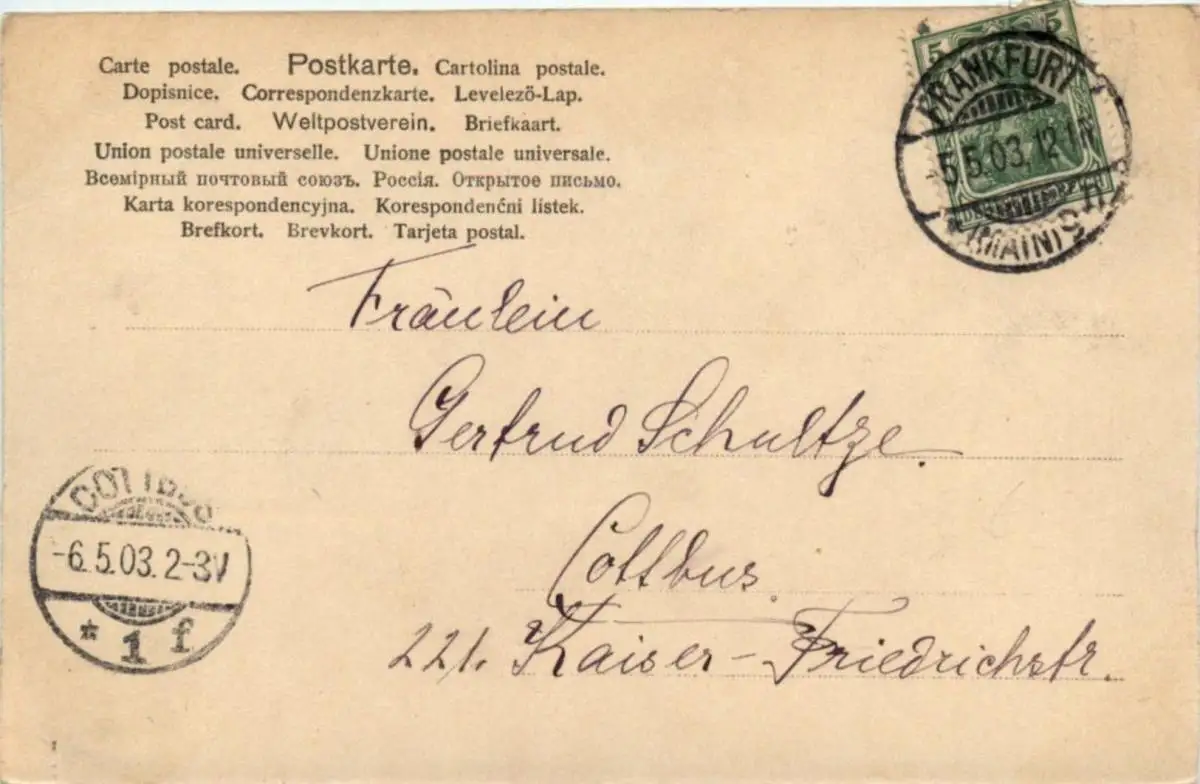 Carte postale. Postkarte. Cartolina postale.
Dopisnice. Correspondenzkarte. Levelező-Lap.
Post card. Weltpostverein. Briefkaart.
Union postale universelle. Unione postale universale.
Всемірный почтовый союзъ. Россія. Открытое письмо.
Karta korespondencyjna. Korespondenćni listek.
Brefkort. Brevkort. Tarjeta postal.
5 5
FRANKFURT
-5.5.03. 12-1
(MAIN)
Fräulein
Gertrud Schultze.
Cottbus.
221. Kaiser-Friedrichstr.
COTTBUS
-6.5.03. 2-3V
* 1 f